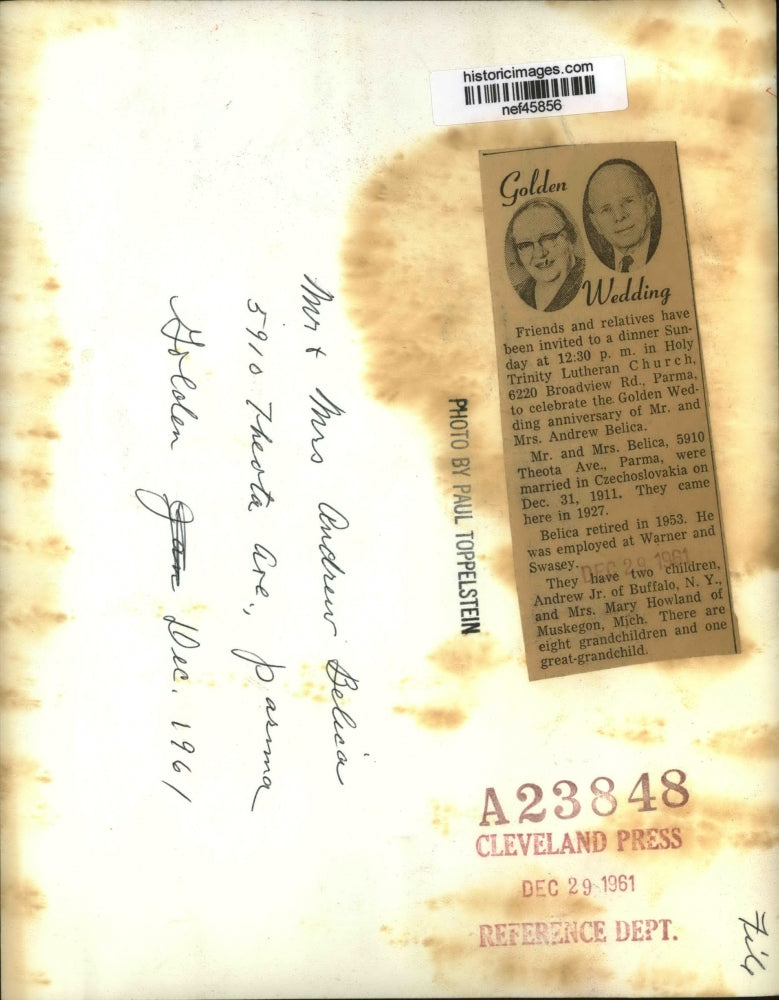 historicimages.com
nef45856
Golden
Wedding
Friends and relatives have
been invited to a dinner Sun-
day at 12:30 p. m. in Holy
Trinity Lutheran Church,
6220 Broadview Rd., Parma,
to celebrate the Golden Wed-
ding anniversary of Mr. and
Mrs. Andrew Belica.
Mr. and Mrs. Belica, 5910
Theota Ave., Parma, were
married in Czechoslovakia on
Dec. 31, 1911. They came
here in 1927.
Belica retired in 1953. He
was employed at Warner and
Swasey.
DEC 29 1961
They have two children,
Andrew Jr. of Buffalo, N. Y.,
and Mrs. Mary Howland of
Muskegon, Mich. There are
eight grandchildren and one
great-grandchild.
PHOTO BY PAUL TOPPELSTEIN
Mr + Mrs Andrew Belica
5910 Theota Ave., Parma
Golden Jan Dec. 1961
A23848
CLEVELAND PRESS
DEC 29 1961
REFERENCE DEPT.
File